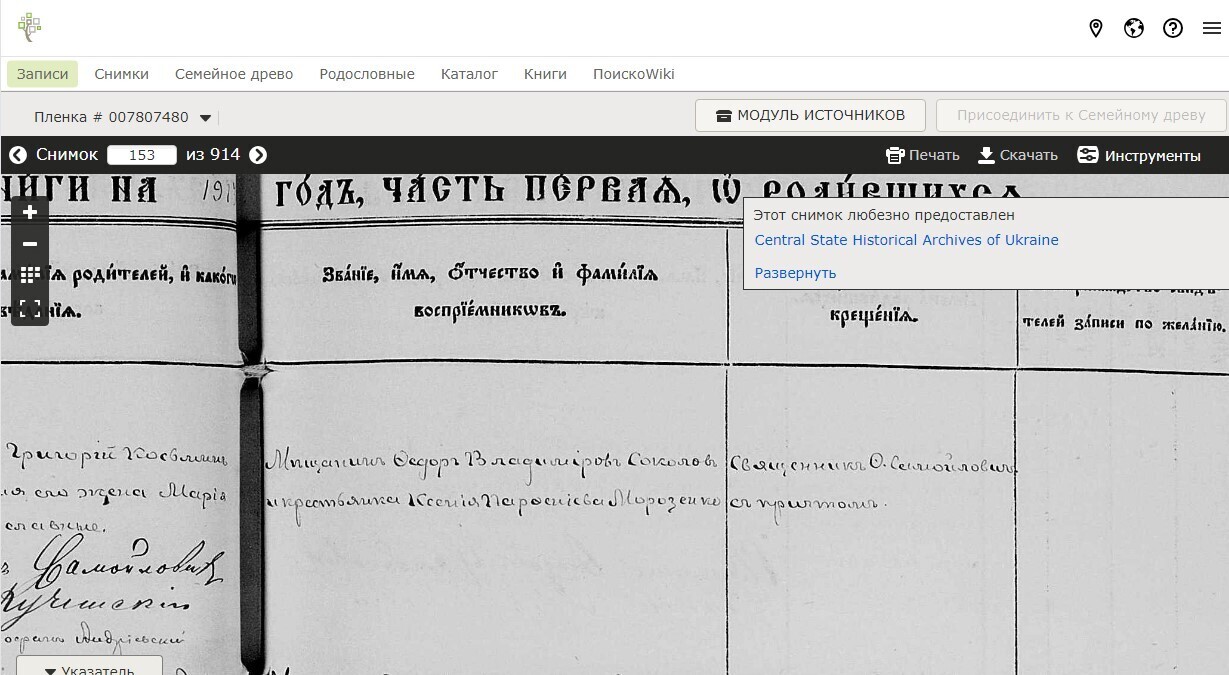 Записи Снимки Семейное древо Родословные Каталог Книги ПоискоWiki
Пленка # 007807480
МОДУЛЬ ИСТОЧНИКОВ
Присоединить к Семейному древу
Снимок 153 из 914
Печать Скачать Инструменты
НА 191
го́дъ, ча́сть пе́рваѧ, ѽ роди́вшихсѧ
Этот снимок любезно предоставлен
Central State Historical Archives of Ukraine
Развернуть
роди́телей, и҆ како́гѡ
Зва́нїе, и҆́мѧ, ѻ҆́тчество и҆ фами́лїѧ
воспрїе́мникѡвъ.
креще́нїѧ.
телей за́писи по жела́нїю.
Григорій Косьминъ
его жена Марія
Мѣщанинъ Ѳедоръ Владиміровъ Соколовъ
и крестьянка Ксенія Морозенко
Священникъ О. Самойловичъ
съ причтомъ.
Самойловичъ
Андріевскій
Указатель